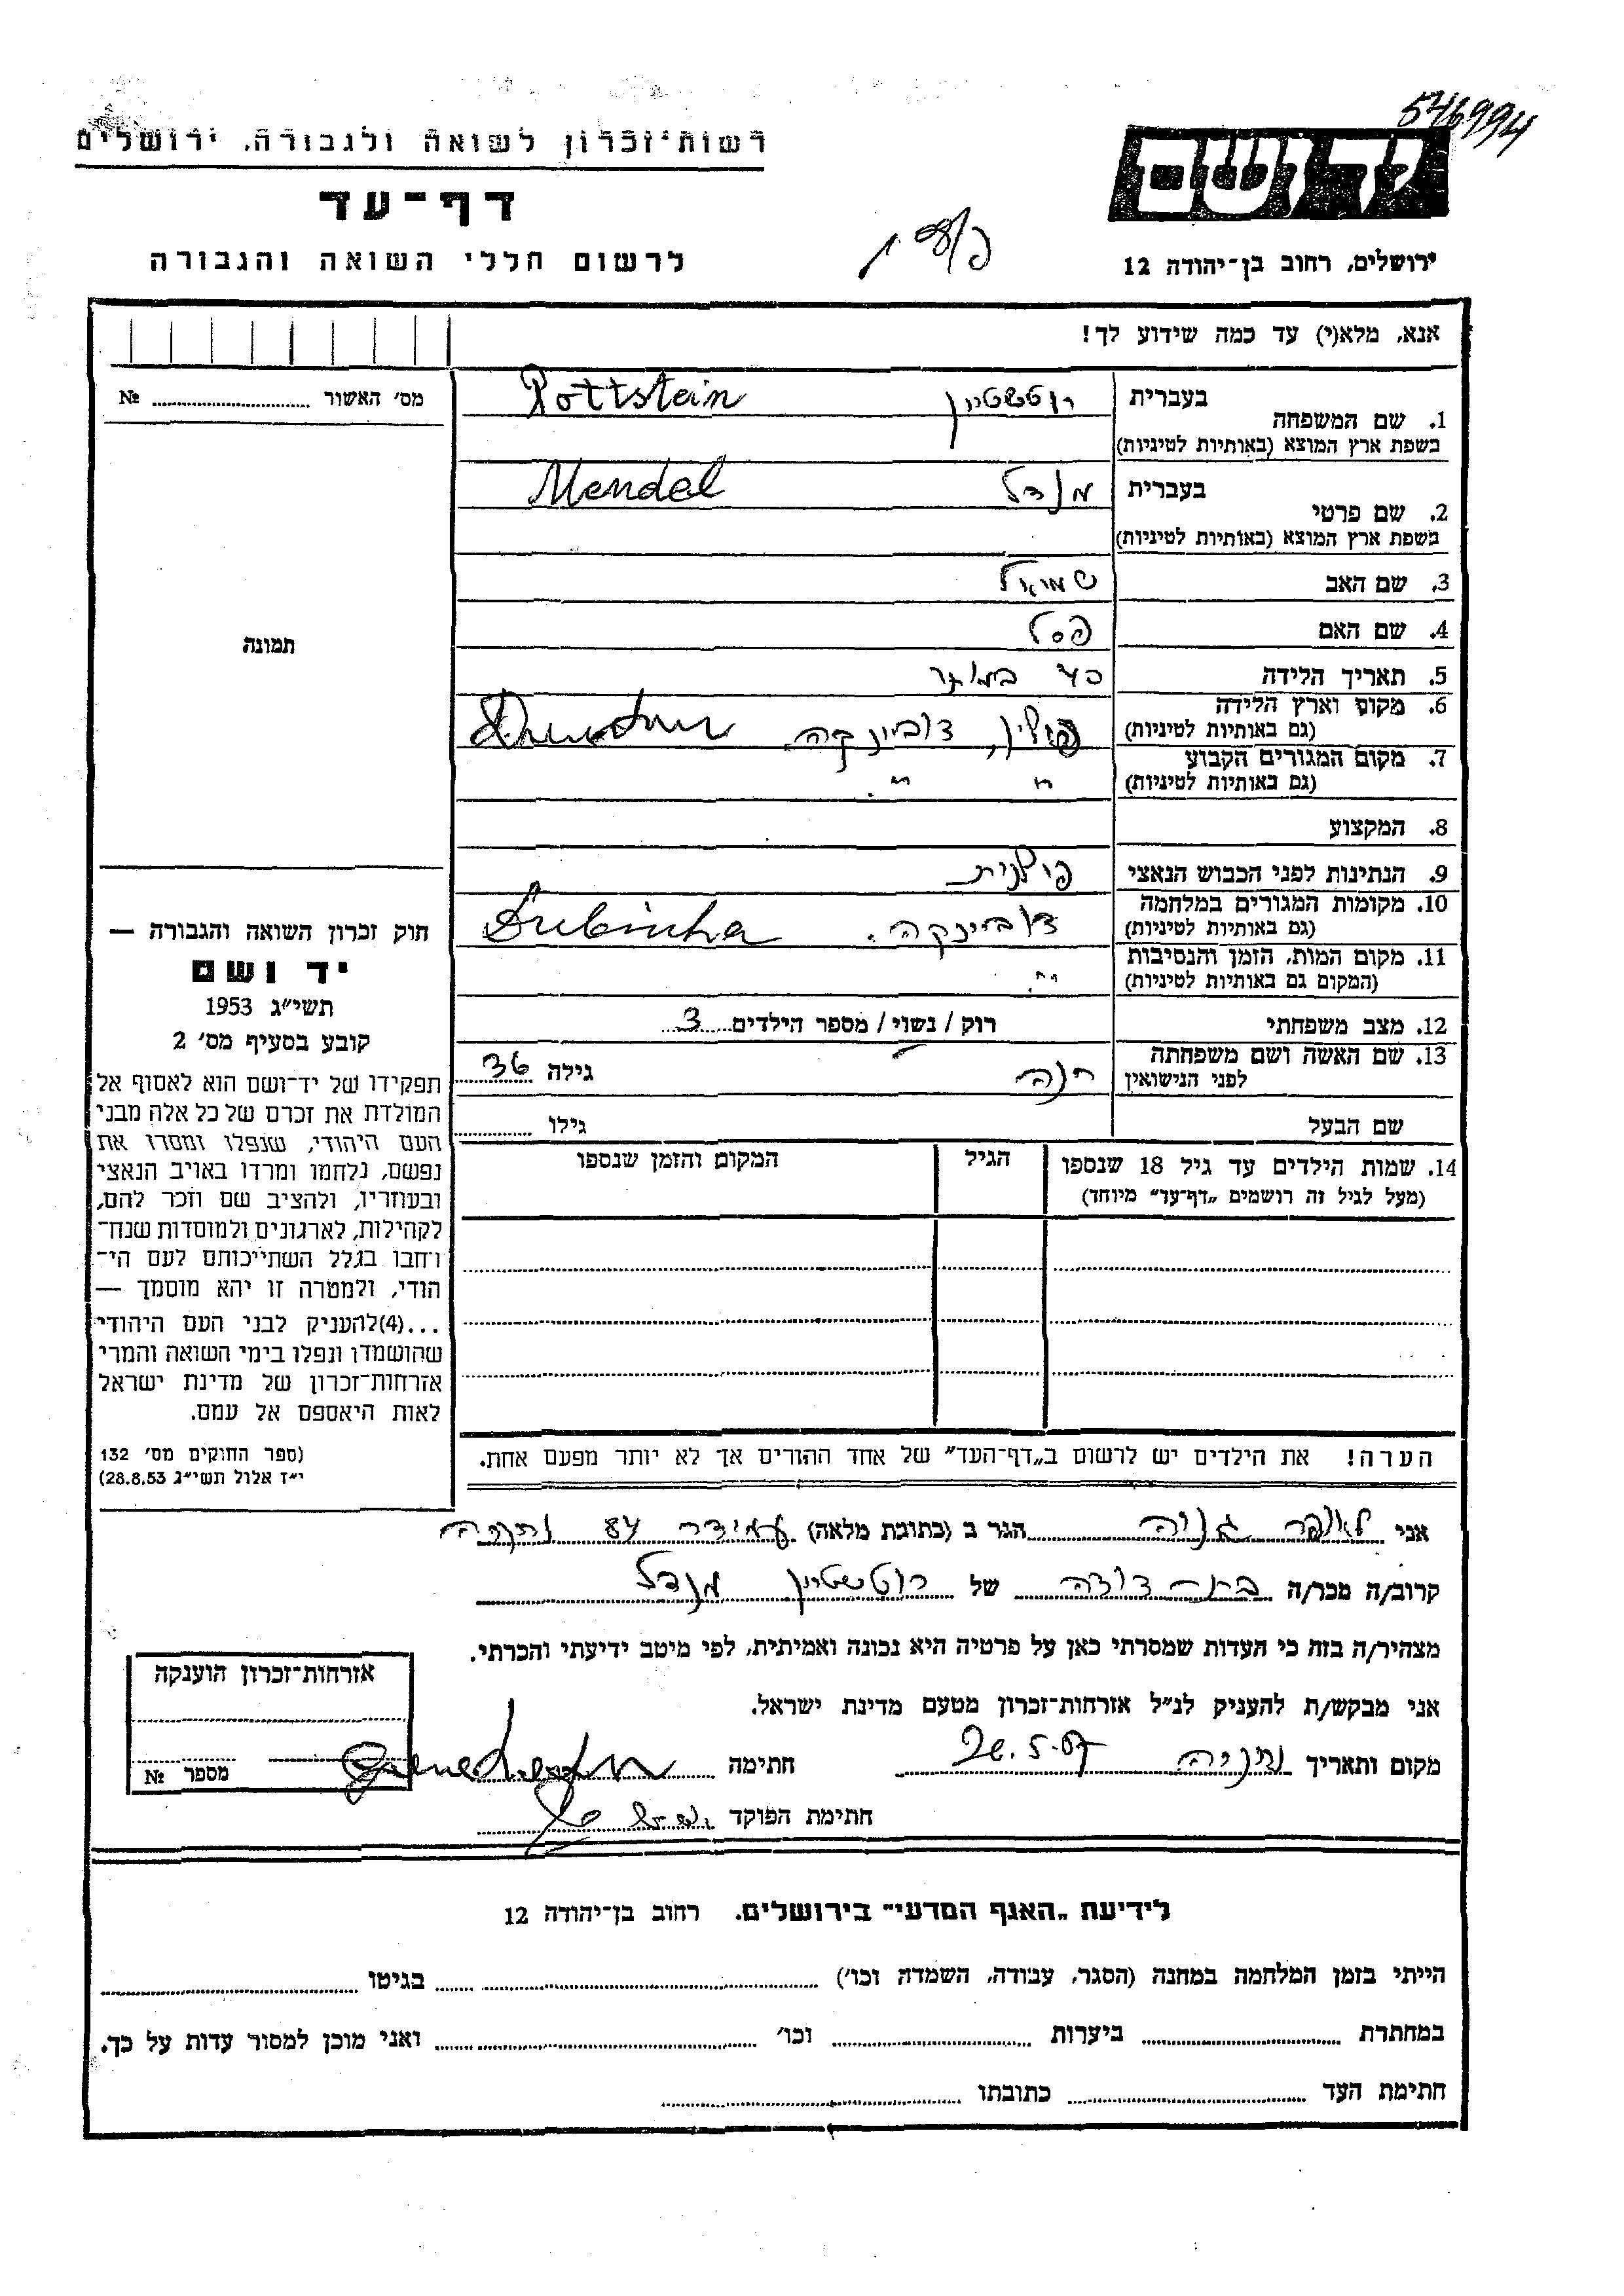 546994
רשות־זכרון לשואה ולגבורה, ירושלים
יד ושם
דף־עד
לרשום חללי השואה והגבורה
ירושלים, רחוב בן־יהודה 12
אנא, מלא(י) עד כמה שידוע לך!
מס׳ האשור № 
1. שם המשפחה
בעברית רוטשטיין Rottstein
בשפת ארץ המוצא (באותיות לטיניות)
2. שם פרטי
בעברית מנדל Mendel
בשפת ארץ המוצא (באותיות לטיניות)
3. שם האב שמואל
4. שם האם פסל
תמונה
5. תאריך הלידה
6. מקום וארץ הלידה פולין, דובינקה
(גם באותיות לטיניות)
7. מקום המגורים הקבוע
(גם באותיות לטיניות) " "
8. המקצוע
9. הנתינות לפני הכבוש הנאצי פולנית
10. מקומות המגורים במלחמה דובינקה. Dubinka
(גם באותיות לטיניות)
11. מקום המות, הזמן והנסיבות
(המקום גם באותיות לטיניות) "
12. מצב משפחתי רוק / נשוי / מספר הילדים 3
13. שם האשה ושם משפחתה
לפני הנישואין חנה גילה 36
שם הבעל גילו
14. שמות הילדים עד גיל 18 שנספו
(מעל לגיל זה רושמים „דף־עד" מיוחד)
הגיל
המקום והזמן שנספו
חוק זכרון השואה והגבורה —
יד ושם
תשי״ג 1953
קובע בסעיף מס׳ 2
תפקידו של יד־ושם הוא לאסוף אל
המולדת את זכרם של כל אלה מבני
העם היהודי, שנפלו ומסרו את
נפשם, נלחמו ומרדו באויב הנאצי
ובעוזריו, ולהציב שם וזכר להם,
לקהילות, לארגונים ולמוסדות שנח־
רחבו בגלל השתייכותם לעם הי־
הודי, ולמטרה זו יהא מוסמך —
...(4)להעניק לבני העם היהודי
שהושמדו ונפלו בימי השואה והמרי
אזרחות־זכרון של מדינת ישראל
לאות היאספם אל עמם.
(ספר החוקים מס׳ 132
י״ז אלול תשי״ג 28.8.53)
הערה! את הילדים יש לרשום ב„דף־העד" של אחד ההורים אך לא יותר מפעם אחת.
אני גניה הגר ב (כתובת מלאה) עמידר 84 נתניה
קרוב/ה מכר/ה בת דודה של רוטשטיין מנדל
מצהיר/ה בזה כי העדות שמסרתי כאן על פרטיה היא נכונה ואמיתית, לפי מיטב ידיעתי והכרתי.
אני מבקש/ת להעניק לנ״ל אזרחות־זכרון מטעם מדינת ישראל.
מקום ותאריך נתניה חתימה
חתימת הפוקד
אזרחות־זכרון הוענקה
מספר №
לידיעת „האגף המדעי" בירושלים. רחוב בן־יהודה 12
הייתי בזמן המלחמה במחנה (הסגר, עבודה, השמדה וכו׳) בגיטו
במחתרת ביערות וכו׳ ואני מוכן למסור עדות על כך.
חתימת העד כתובתו